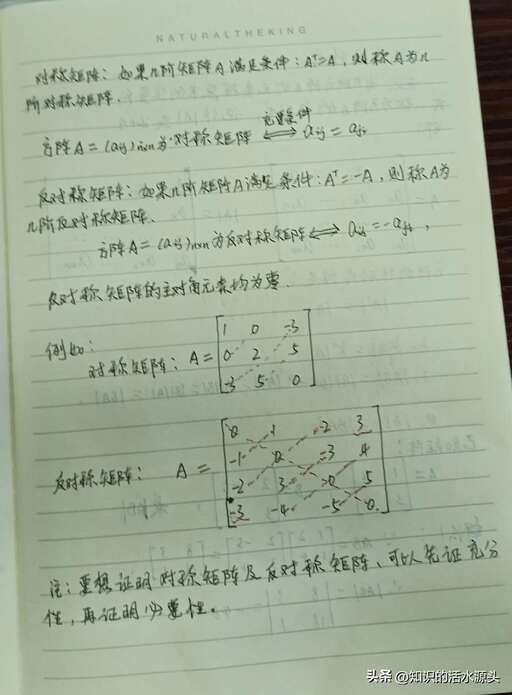 NATURALTHEKING
对称矩阵：如果n阶矩阵A满足条件：Aᵀ=A，则称A为n
阶对称矩阵.
充要条件
方阵A=(aij)n×n为对称矩阵 ⟺ aij = aji
反对称矩阵：如果n阶矩阵A满足条件：Aᵀ=-A，则称A为
n阶反对称矩阵.
方阵A=(aij)n×n为反对称矩阵 ⟺ aij = -aji，
反对称矩阵的主对角元素均为零.
例如：
1 0 -3
对称矩阵：A = 0 2 5
-3 5 0
0 1 -2 3
-1 0 -3 4
反对称矩阵： A =
-2 3 0 5
-3 -4 -5 0
注：要想证明对称矩阵及反对称矩阵、可以先证充分
性，再证明必要性。
头条 @知识的活水源头